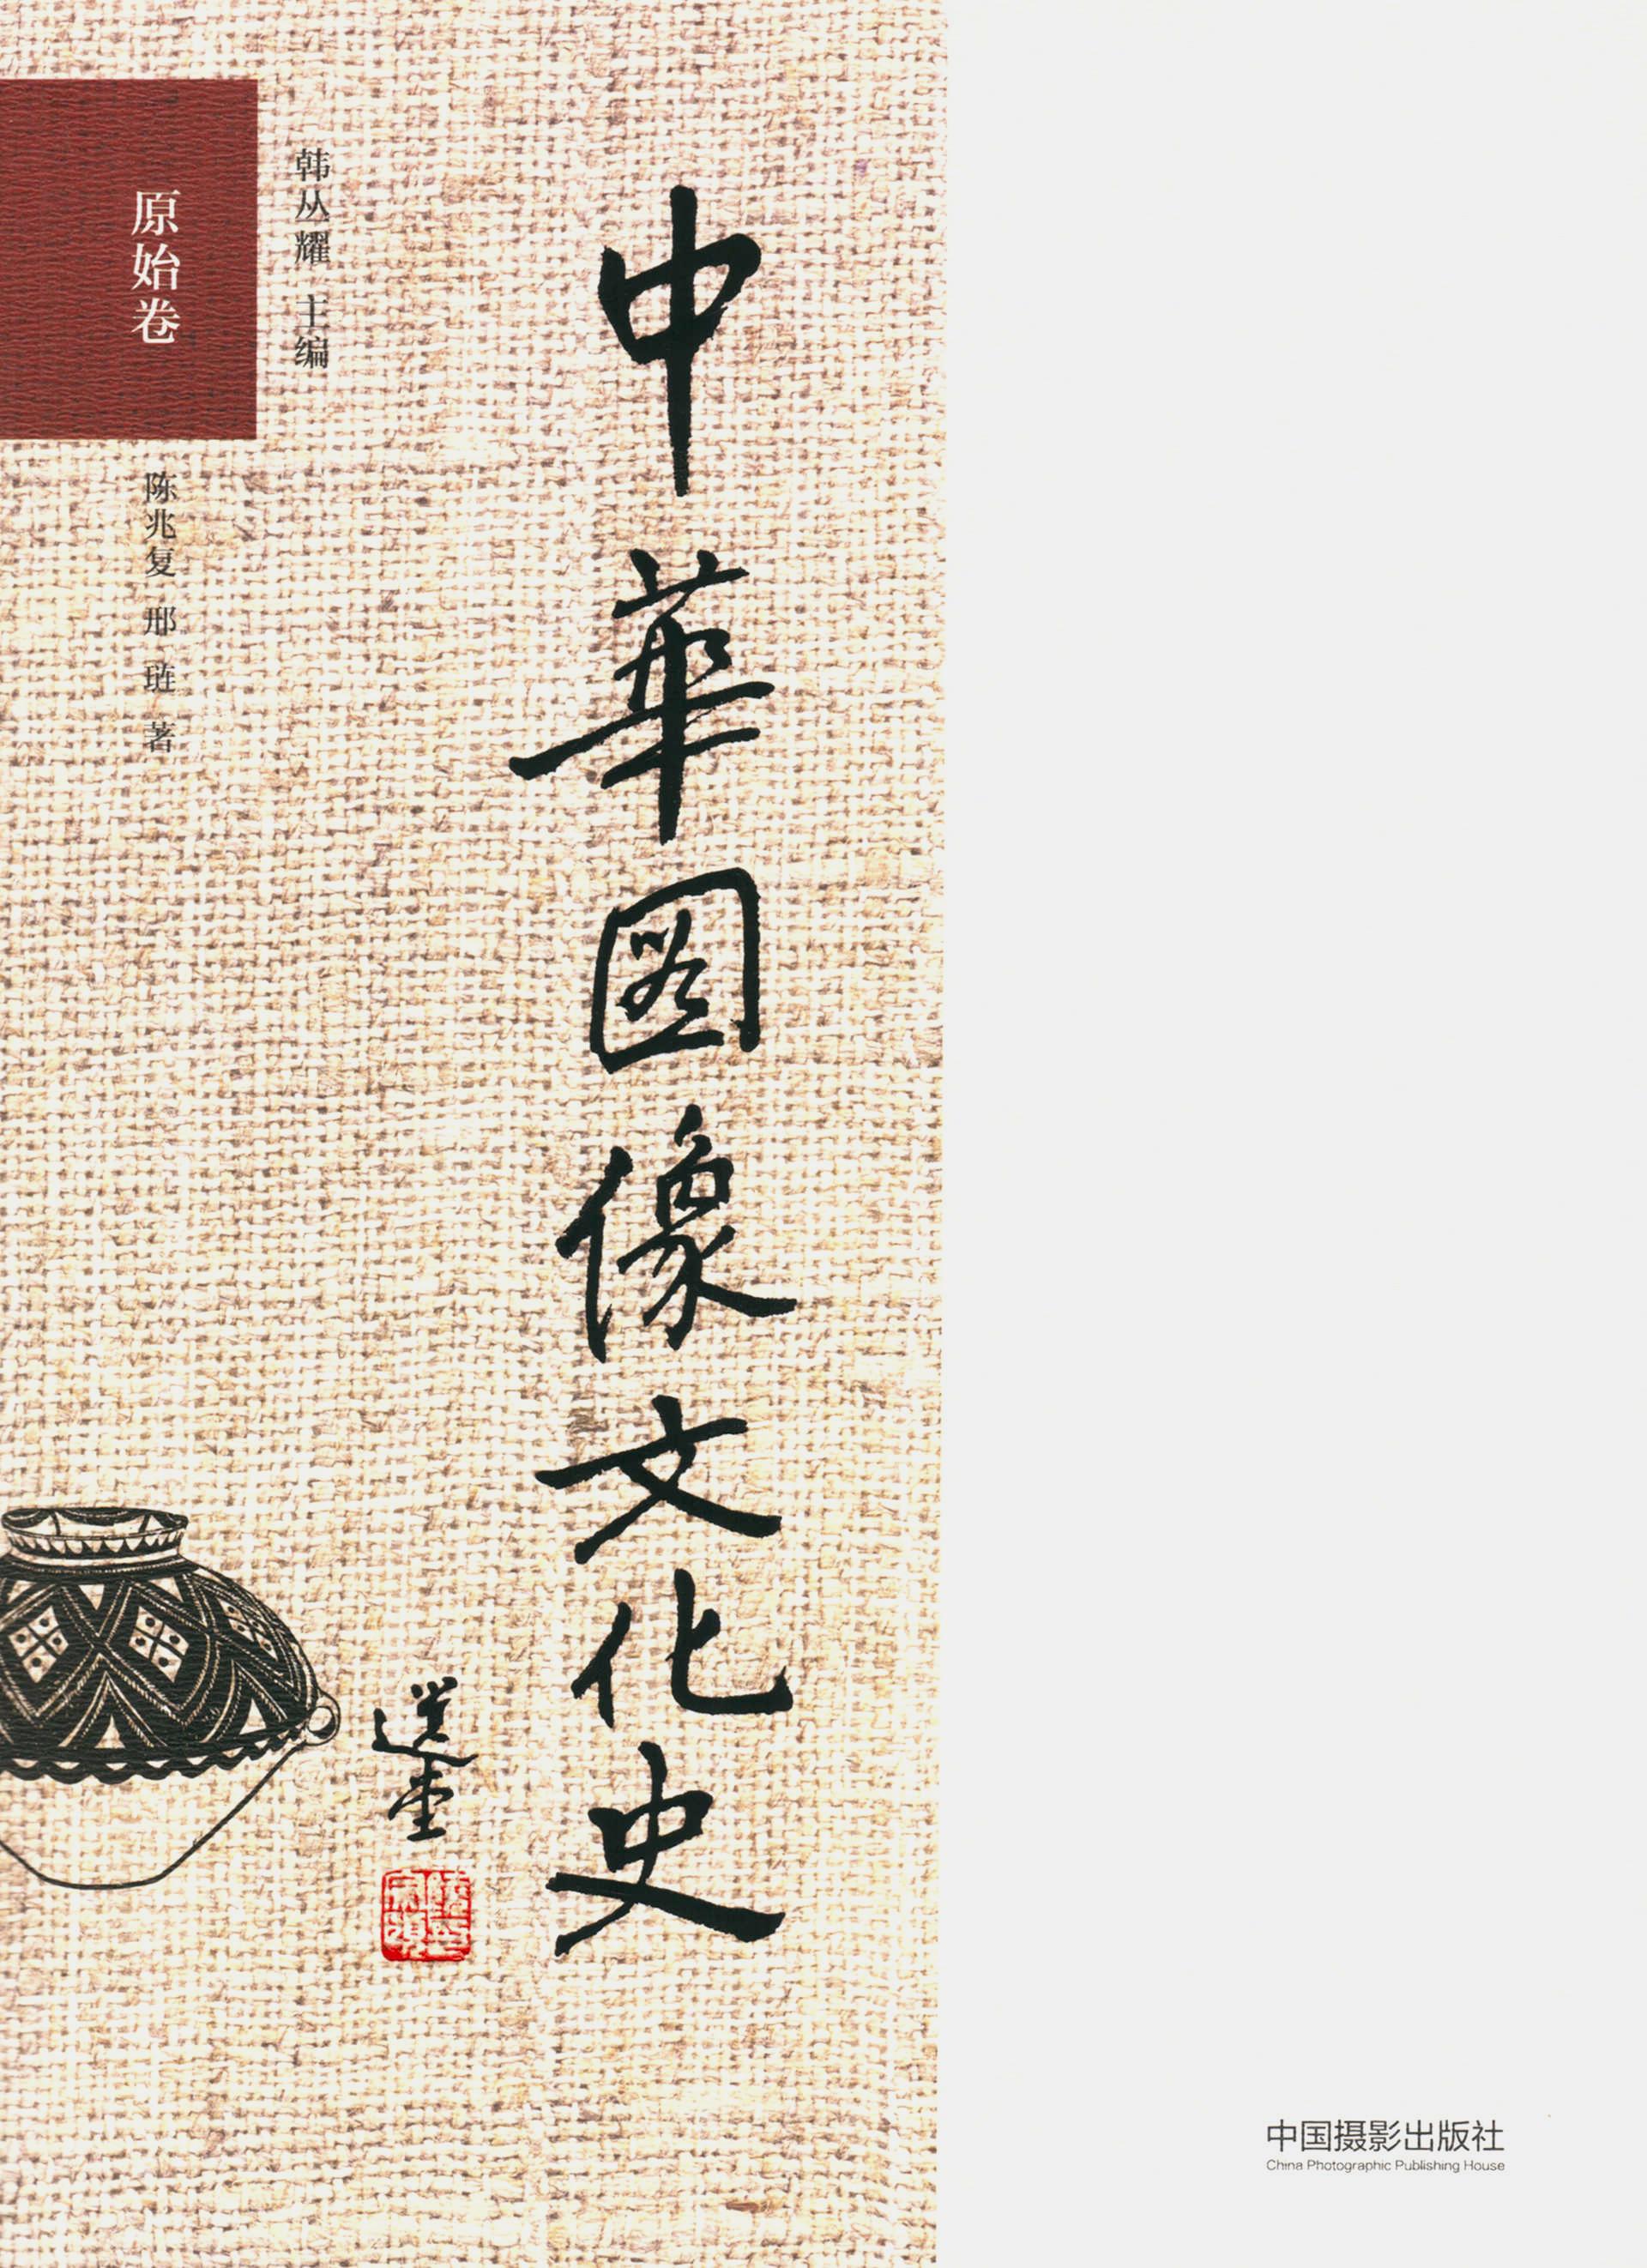 中華图像文化史
選堂
韩丛耀 主编
原始卷
陈兆复 邢 琏 著
中国摄影出版社
China Photographic Publishing House